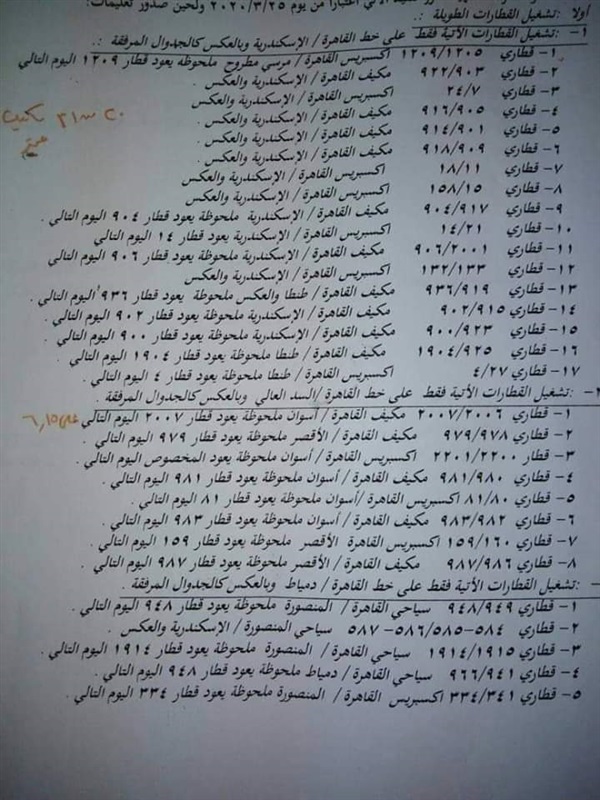 اعتبارا من يوم ٢٠٢٠/٣/٢٥ ولحين صدور تعليمات:
أولا :تشغيل القطارات الطويلة :.
١- :تشغيل القطارات الأتية فقط على خط القاهرة / الإسكندرية وبالعكس كالجدوال المرفقة :.
١- قطاري ١٢٠٩/١٢٠٥ اكسبريس القاهرة / مرسي مطروح ملحوظة يعود قطار ١٢٠٩ اليوم التالي
٢- قطاري ٩٢٢/٩٠٣ مكيف القاهرة / الإسكندرية والعكس .
٣- قطاري ٢٤/٧ اكسبريس القاهرة / الإسكندرية والعكس
٤- قطاري ٩١٦/٩٠٥ مكيف القاهرة / الإسكندرية والعكس .
٥- قطاري ٩١٤/٩٠١ مكيف القاهرة / الإسكندرية والعكس .
٦- قطاري ٩١٨/٩٠٩ مكيف القاهرة / الإسكندرية والعكس .
٧- قطاري ١٨/١١ اكسبريس القاهرة / الإسكندرية والعكس
٨- قطاري ١٥٨/١٥ اكسبريس القاهرة / الإسكندرية والعكس
٩- قطاري ٩٠٤/٩١٧ مكيف القاهرة / الإسكندرية ملحوظة يعود قطار ٩٠٤ اليوم التالي .
١٠- قطاري ١٤/٢١ اكسبريس القاهرة / الإسكندرية ملحوظة يعود قطار ١٤ اليوم التالي
١١- قطاري ٩٠٦/٢٠٠١ مكيف القاهرة / الإسكندرية ملحوظة يعود قطار ٩٠٦ اليوم التالي .
١٢- قطاري ١٣٢/١٣٣ اكسبريس القاهرة / الإسكندرية والعكس
١٣- قطاري ٩٣٦/٩١٩ مكيف القاهرة / طنطا والعكس ملحوظة يعود قطار ٩٣٦ اليوم التالي .
١٤- قطاري ٩٠٢/٩١٥ مكيف القاهرة / الإسكندرية ملحوظة يعود قطار ٩٠٢ اليوم التالي .
١٥- قطاري ٩٠٠/٩٢٣ مكيف القاهرة / الإسكندرية ملحوظة يعود قطار ٩٠٠ اليوم التالي .
١٦- قطاري ١٩٠٤/٩٢٥ مكيف القاهرة / طنطا ملحوظة يعود قطار ١٩٠٤ اليوم التالي .
١٧- قطاري ٤/٢٧ اكسبريس القاهرة / طنطا ملحوظة يعود قطار ٤ اليوم التالي .
٢- :تشغيل القطارات الأتية فقط على خط القاهرة /السد العالي وبالعكس كالجدوال المرفقة .
١- قطاري ٢٠٠٧/٢٠٠٦ مكيف القاهرة / أسوان ملحوظة يعود قطار ٢٠٠٧ اليوم التالي
٢- قطاري ٩٧٩/٩٧٨ مكيف القاهرة / الأقصر ملحوظة يعود قطار ٩٧٩ اليوم التالي .
٣- قطار ٢٢٠١/٢٢٠٠ اكسبريس القاهرة / أسوان ملحوظة يعود المخصوص اليوم التالي .
٤- قطاري ٩٨١/٩٨٠ مكيف القاهرة / أسوان ملحوظة يعود قطار ٩٨١ اليوم التالي .
٥- قطاري ٨١/٨٠ اكسبريس القاهرة /أسوان ملحوظة يعود قطار ٨١ اليوم التالي .
٦- قطاري ٩٨٣/٩٨٢ مكيف القاهرة / أسوان ملحوظة يعود قطار ٩٨٣ اليوم التالي .
٧- قطاري ١٥٩/١٦٠ اكسبريس القاهرة الأقصر ملحوظة يعود قطار ١٥٩ اليوم التالي .
٨- قطاري ٩٨٧/٩٨٦ مكيف القاهرة / الأقصر ملحوظة يعود قطار ٩٨٧ اليوم التالي .
- :تشغيل القطارات الأتية فقط على خط القاهرة / دمياط وبالعكس كالجدوال المرفقة .
١- قطاري ٩٤٨/٩٤٩ سياحي القاهرة / المنصورة ملحوظة يعود قطار ٩٤٨ اليوم التالي .
٢- قطاري ٥٨٤- ٥٨٦/٥٨٥- ٥٨٧ سياحي المنصورة / الإسكندرية والعكس .
٣- قطاري ١٩١٤/١٩١٥ سياحي القاهرة / المنصورة ملحوظة يعود قطار ١٩١٤ اليوم التالي .
٤- قطاري ٩٦٦/٩٤١ سياحي القاهرة / دمياط ملحوظة يعود قطار ٩٤٨ اليوم التالي .
٥- قطاري ٣٣٤/٣٤١ اكسبريس القاهرة / المنصورة ملحوظة يعود قطار ٣٣٤ اليوم التالي .